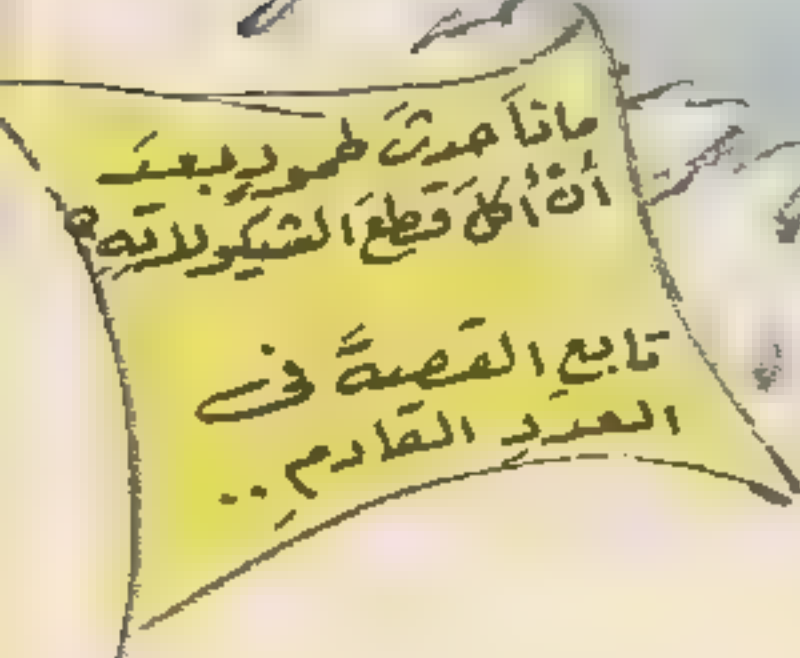 ماذاَ حدثَ لحمودٍ بعدَ
أنْ أُكلَ قطعَ الشيكولاته؟
تابعِ القصةَ في
العددِ القادمِ ..